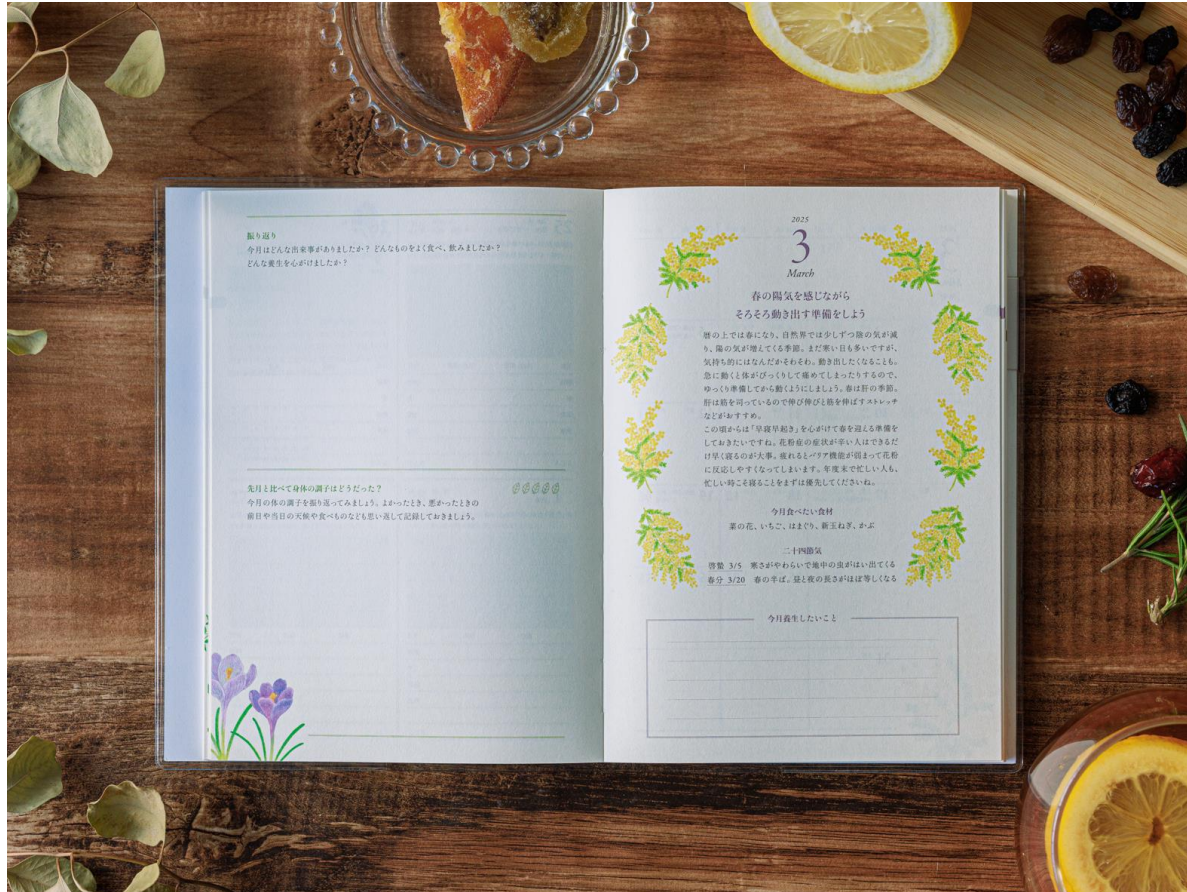 振り返り
今月はどんな出来事がありましたか? どんなものをよく食べ、飲みましたか?
どんな養生を心がけましたか?
先月と比べて身体の調子はどうだった?
今月の体の調子を振り返ってみましょう。よかったとき、悪かったときの
前日や当日の天候や食べものなども思い返して記録しておきましょう。
2025
3
March
春の陽気を感じながら
そろそろ動き出す準備をしよう
暦の上では春になり、自然界では少しずつ陰の気が減
り、陽の気が増えてくる季節。まだ寒い日も多いですが、
気持ち的にはなんだかそわそわ。動き出したくなることも。
急に動くと体がびっくりして痛めてしまったりするので、
ゆっくり準備してから動くようにしましょう。春は肝の季節。
肝は筋を司っているので伸び伸びと筋を伸ばすストレッチ
などがおすすめ。
この頃からは「早寝早起き」を心がけて春を迎える準備を
しておきたいですね。花粉症の症状が辛い人はできるだ
け早く寝るのが大事。疲れるとバリア機能が弱まって花粉
に反応しやすくなってしまいます。年度末で忙しい人も、
忙しい時こそ寝ることをまずは優先してくださいね。
今月食べたい食材
菜の花、いちご、はまぐり、新玉ねぎ、かぶ
二十四節気
啓蟄 3/5 寒さがやわらいで地中の虫がはい出てくる
春分 3/20 春の半ば。昼と夜の長さがほぼ等しくなる
今月養生したいこと